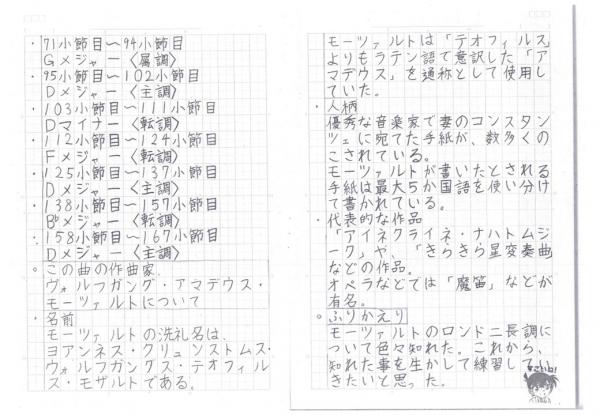 ・71小節目〜94小節目
Gメジャー〈属調〉
・95小節目〜102小節目
Dメジャー〈主調〉
・103小節目〜111小節目
Dマイナー〈転調〉
・112小節目〜124小節目
Fメジャー〈転調〉
・125小節目〜137小節目
Dメジャー〈主調〉
・138小節目〜157小節目
B♭メジャー〈転調〉
・158小節目〜167小節目
Dメジャー〈主調〉
○この曲の作曲家、
ヴォルフガング・アマデウス・
モーツァルトについて
・名前
モーツァルトの洗礼名は、
ヨアンネス・クリュソストムス・
ヴォルフガングス・テオフィル
ス・モザルトである。
モーツァルトは「テオフィルス」
よりもラテン語で意訳した「ア
マデウス」を通称として使用し
ていた。
・人柄
優秀な音楽家で妻のコンスタン
ツェに宛てた手紙が、数多くの
こされている。
モーツァルトが書いたとされる
手紙は最大5か国語を使い分け
て書かれている。
・代表的な作品
「アイネクライネ・ナハトムジ
ーク」や、「きらきら星変奏曲
などの作品。
オペラなどでは「魔笛」などが
有名。
○ふりかえり
モーツァルトのロンドニ長調に
ついて色々知れた。これから、
知れた事を生かして練習してい
きたいと思った。